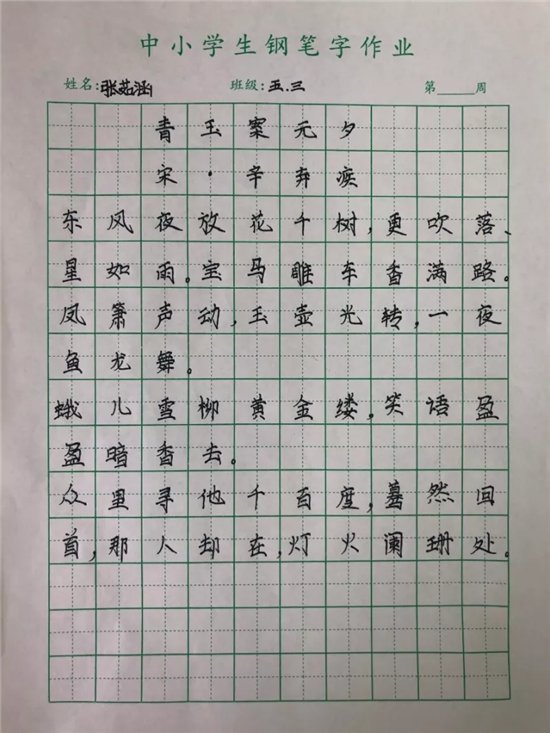 中小学生钢笔字作业
姓名:张茹涵 班级:五.三 第____周
青玉案元夕
宋·辛弃疾
东风夜放花千树,更吹落、
星如雨。宝马雕车香满路。
凤箫声动,玉壶光转,一夜
鱼龙舞。
蛾儿雪柳黄金缕。笑语盈
盈暗香去。
众里寻他千百度,蓦然回
首,那人却在,灯火阑珊处。